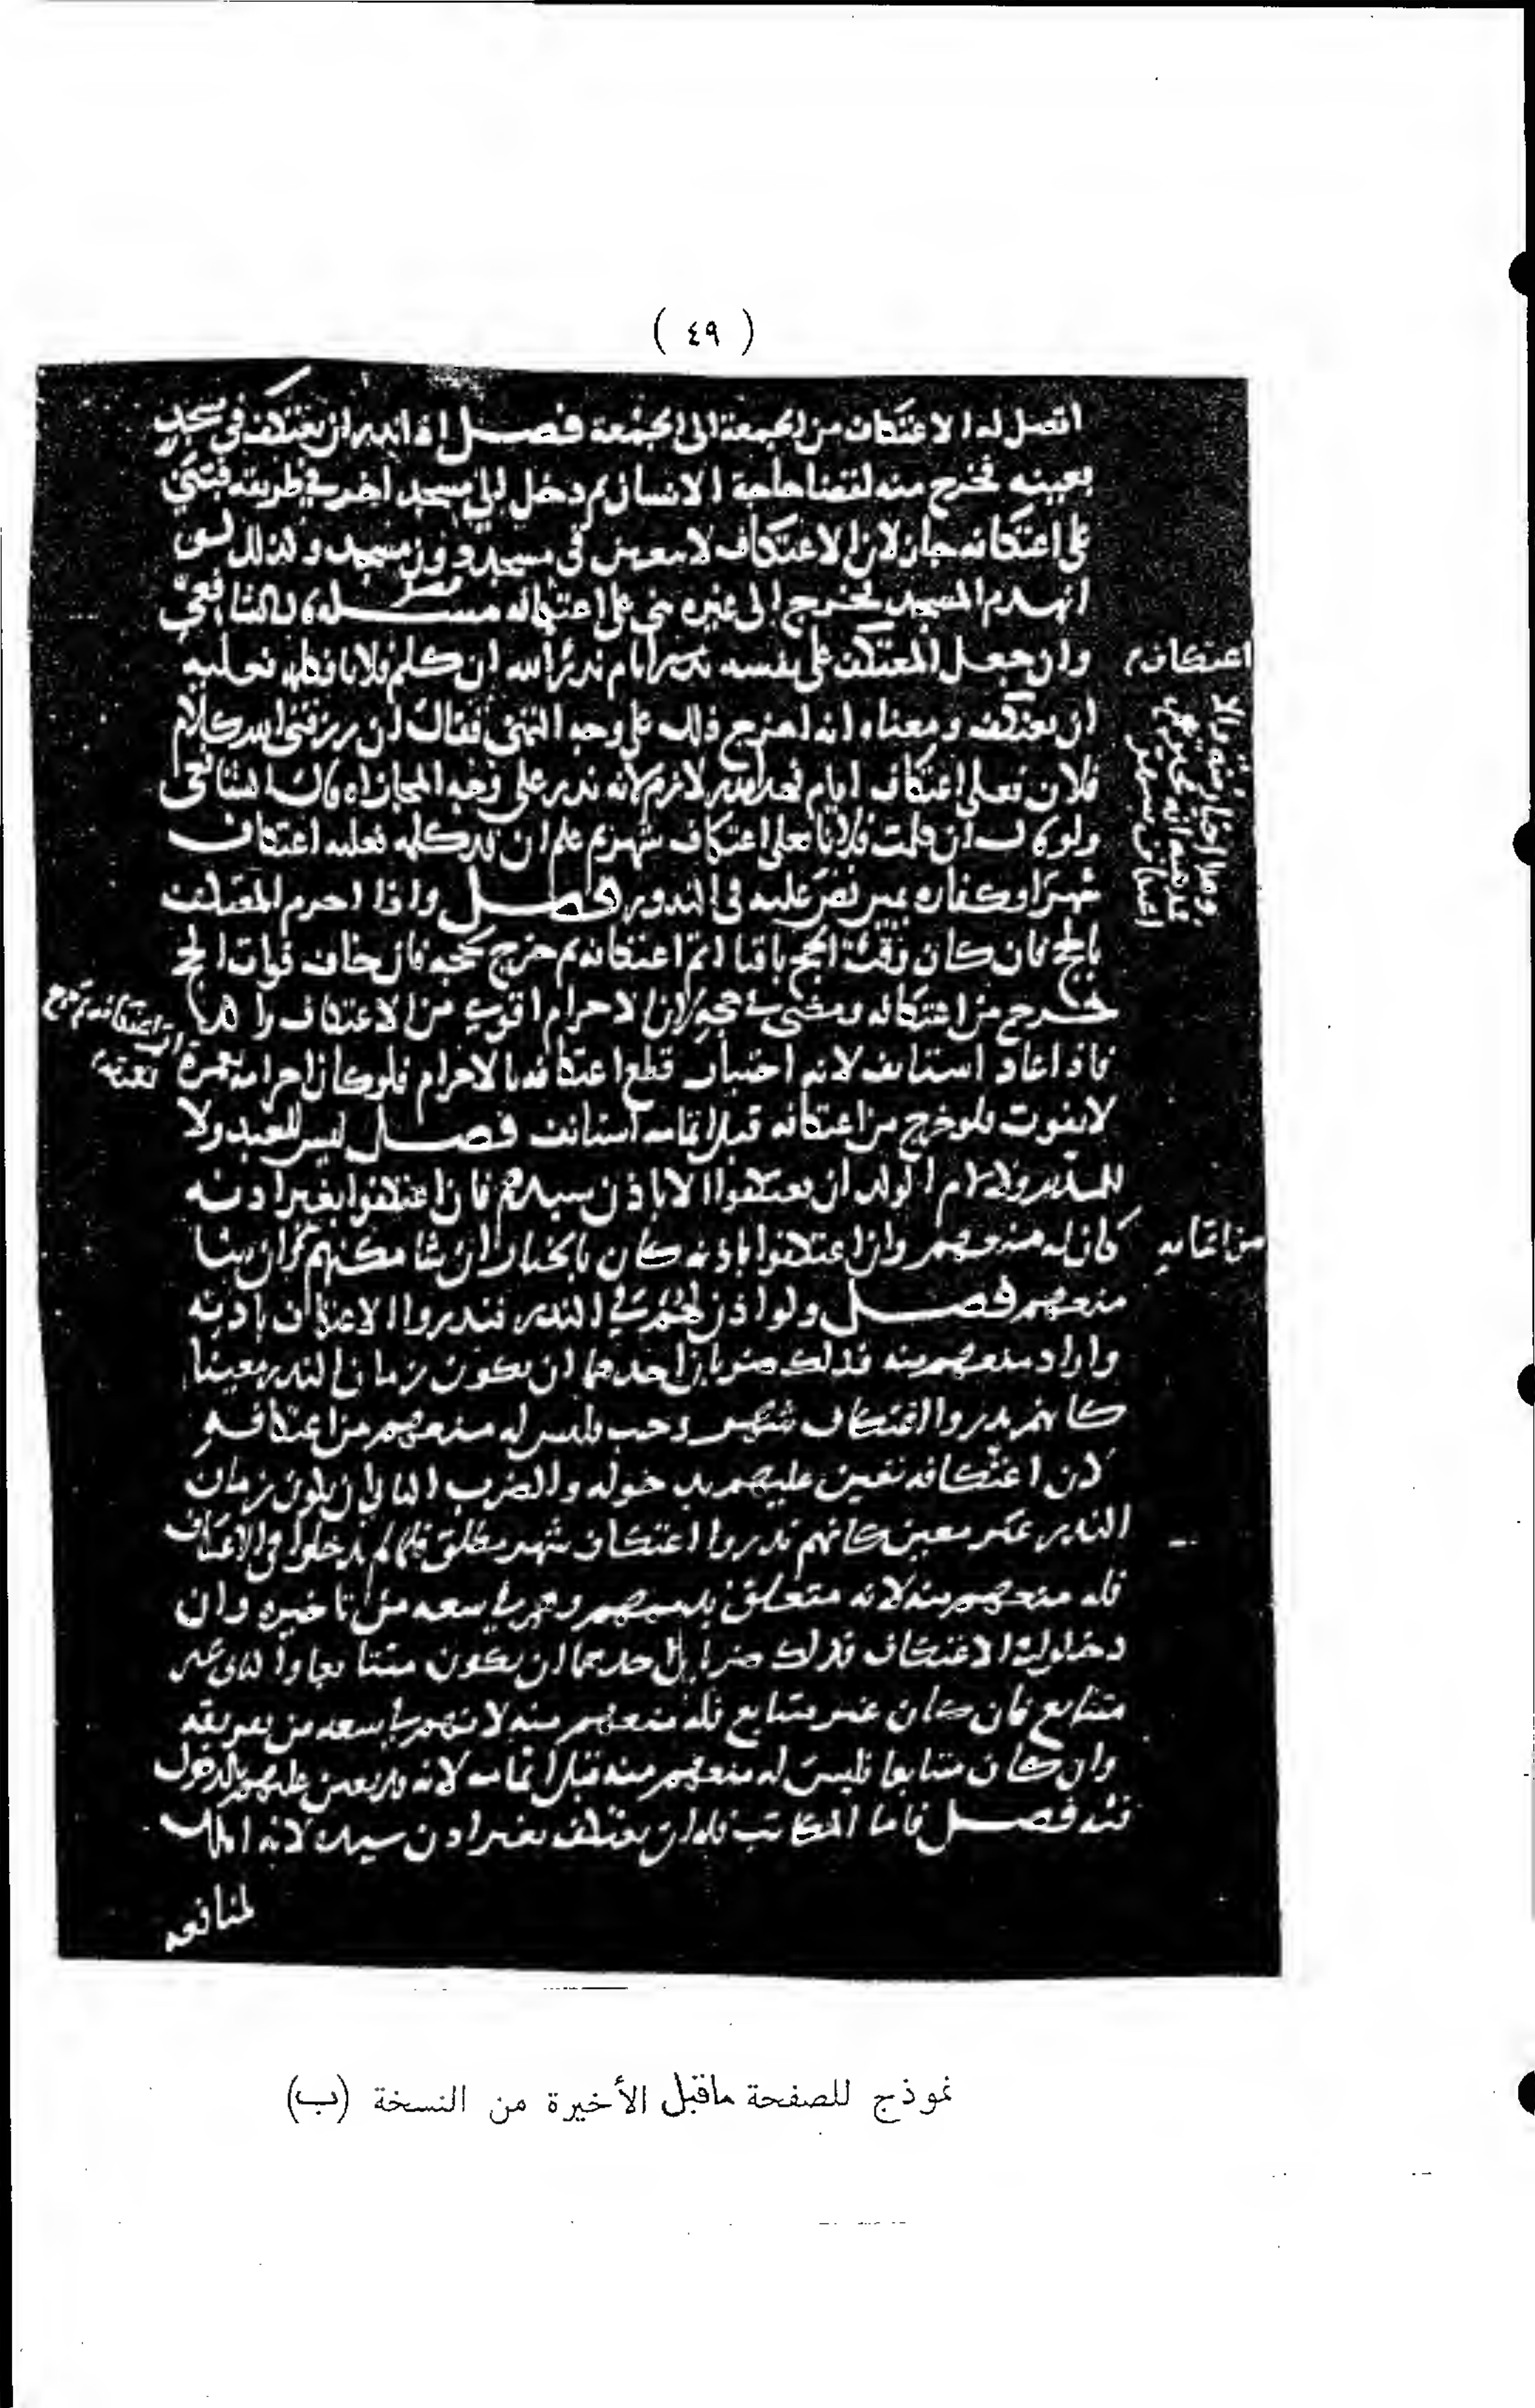 ( ٤٩ )
اتصل له الاعتكاف من الجمعة الى الجمعة فصل اذا نذر ان يعتكف في مسجد
بعينه فخرج منه لقضا حاجة الانسان ثم دخل الى مسجد اخر في طريقه فبنى
على اعتكافه جاز لان الاعتكاف لا في مسجد دون مسجد وكذلك لو
انهدم المسجد فخرج الى غيره بنى على اعتكافه مسله قال الشافعي
وان جعل المعتكف على نفسه الله ان كلم فلانا فعليه
ان يعتكف ومعناه انه اخرج ذلك على وجه التمني فقال ان رزقني الله كلام
فلان فعلي اعتكاف ايام فعدا نذر لازم لانه نذر على وجه المجازاه قال الشافعي
ولو قال ان كلمت فلانا فعلي اعتكاف شهر ثم علم ان قد كلمه فعليه اعتكاف
شهر او كفاره يمين نص عليه في النذور فصل واذا احرم المعتكف
بالحج فان كان وقت الحج باقيا اتم اعتكافه ثم خرج لحجه فان خاف فوات الحج
خرج من اعتكافه ومضى في حجه لان الاحرام اقوى من الاعتكاف
فاذا عاد استانف لانه قطع اعتكافه بالاحرام فلو كان احرامه بعمرة
لا يفوت فلو خرج من اعتكافه قبل اتمامه استانف فصل ليس للعبد ولا
للمدبر ولا لام الولد ان يعتكفوا الا باذن سيدهم فان اعتكفوا بغير اذنه
كان له منعهم وان اعتكفوا باذنه كان بالخيار ان شا مكنهم وان شا
منعهم فصل ولو اذن لهم في النذر فنذروا الاعتكاف باذنه
واراد منعهم منه فذلك ضربان احدهما ان يكون زمان النذر معينا
كانهم نذروا اعتكاف شهر رجب فليس له منعهم من اعتكافه
لان اعتكافه تعين عليهم بدخوله والضرب الثاني ان يكون زمان
النذر غير معين كانهم نذروا اعتكاف شهر مطلق فان لم يدخلوا في الاعتكاف
فله منعهم منه لانه متعلق بذممهم وهم في سعه من تاخيره وان
دخلوا في الاعتكاف فذلك ضربان احدهما ان يكون متتابعا والثاني غير
متتابع فان كان غير متتابع فله منعهم منه لانهم في سعه من تفريقه
وان كان متتابعا فليس له منعهم منه قبل اتمامه لانه قد تعين عليهم بالدخول
فيه فصل فاما المكاتب فله ان يعتكف بغير اذن سيده لانه املك
لمنافعه
اعتكاف
من اتمامه
نموذج للصفحة ماقبل الأخيرة من النسخة (ب)